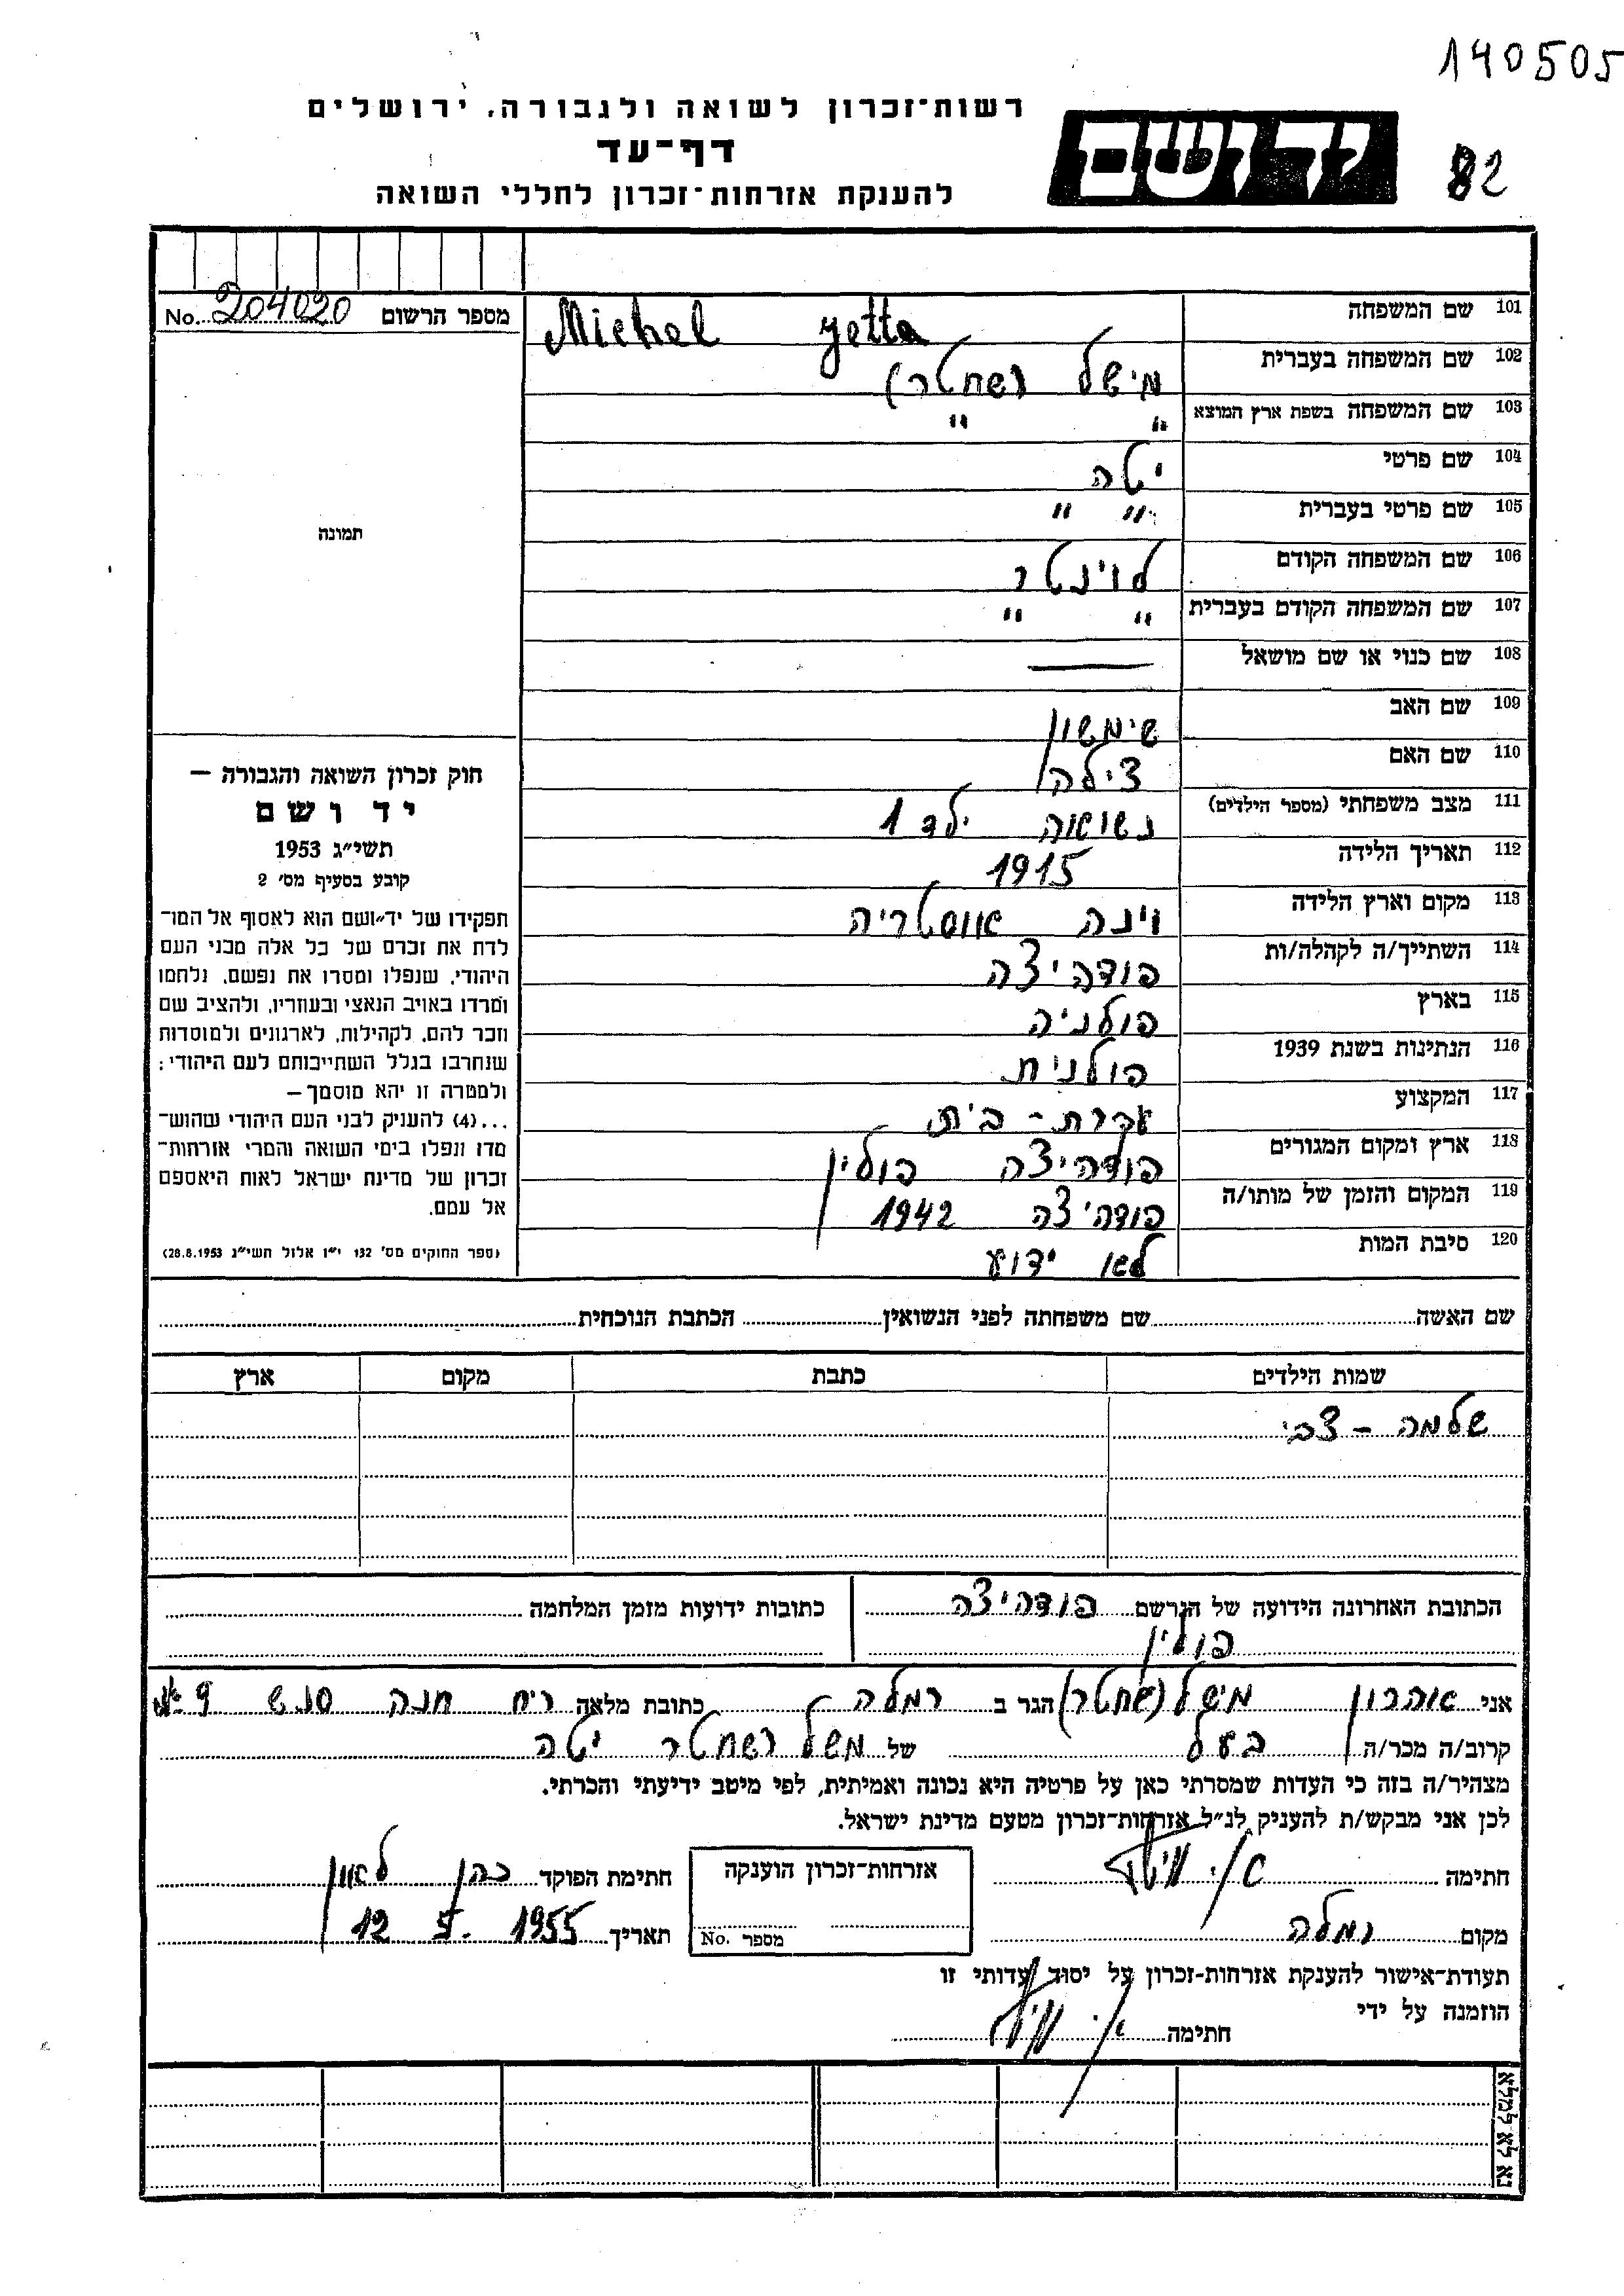 140505
רשות־זכרון לשואה ולגבורה, ירושלים
יד ושם
דף־עד
82
להענקת אזרחות־זכרון לחללי השואה
101 שם המשפחה Michel Yetta
מספר הרשום No. 204020
102 שם המשפחה בעברית מישל (שחטר)
103 שם המשפחה בשפת ארץ המוצא " "
104 שם פרטי יטה
105 שם פרטי בעברית " "
תמונה
106 שם המשפחה הקודם לוינטר
107 שם המשפחה הקודם בעברית " "
108 שם כנוי או שם מושאל —
109 שם האב שימשון
110 שם האם צילה
111 מצב משפחתי (מספר הילדים) נשואה ילד 1
112 תאריך הלידה 1915
113 מקום וארץ הלידה וינה אוסטריה
114 השתייך/ה לקהלה/ות פודהיצה
115 בארץ פולניה
116 הנתינות בשנת 1939 פולנית
117 המקצוע עקרת - בית
118 ארץ ומקום המגורים פודהיצה פולין
119 המקום והזמן של מותו/ה פודהיצה 1942
120 סיבת המות לא ידוע
חוק זכרון השואה והגבורה —
יד ושם
תשי״ג 1953
קובע בסעיף מס׳ 2
תפקידו של יד־ושם הוא לאסוף אל המו־
לדת את זכרם של כל אלה מבני העם
היהודי, שנפלו ומסרו את נפשם, נלחמו
ומרדו באויב הנאצי ובעוזריו, ולהציב שם
וזכר להם, לקהילות, לארגונים ולמוסדות
שנחרבו בגלל השתייכותם לעם היהודי:
ולמטרה זו יהא מוסמך —
...(4) להעניק לבני העם היהודי שהוש־
מדו ונפלו בימי השואה והמרי אזרחות־
זכרון של מדינת ישראל לאות היאספם
אל עמם.
(ספר החוקים מס׳ 132 י״ז אלול תשי״ג 28.8.1953)
שם האשה שם משפחתה לפני הנשואין הכתבת הנוכחית
שמות הילדים כתבת מקום ארץ
שלמה - צבי
הכתובת האחרונה הידועה של הנרשם פודהיצה
פולין
כתובות ידועות מזמן המלחמה
אני אהרון מישל (שחטר) הגר ב רמלה כתובת מלאה רח חנה סנש 9
קרוב/ה מכר/ה בעל של משל שחטר יטה
מצהיר/ה בזה כי העדות שמסרתי כאן על פרטיה היא נכונה ואמיתית, לפי מיטב ידיעתי והכרתי.
לכן אני מבקש/ת להעניק לנ״ל אזרחות־זכרון מטעם מדינת ישראל.
חתימה
אזרחות־זכרון הוענקה
חתימת הפוקד כהן לאון
מקום רמלה
מספר No.
תאריך 12 5. 1955
תעודת־אישור להענקת אזרחות־זכרון על יסוד עדותי זו
הוזמנה על ידי
חתימה
נא לא למלא